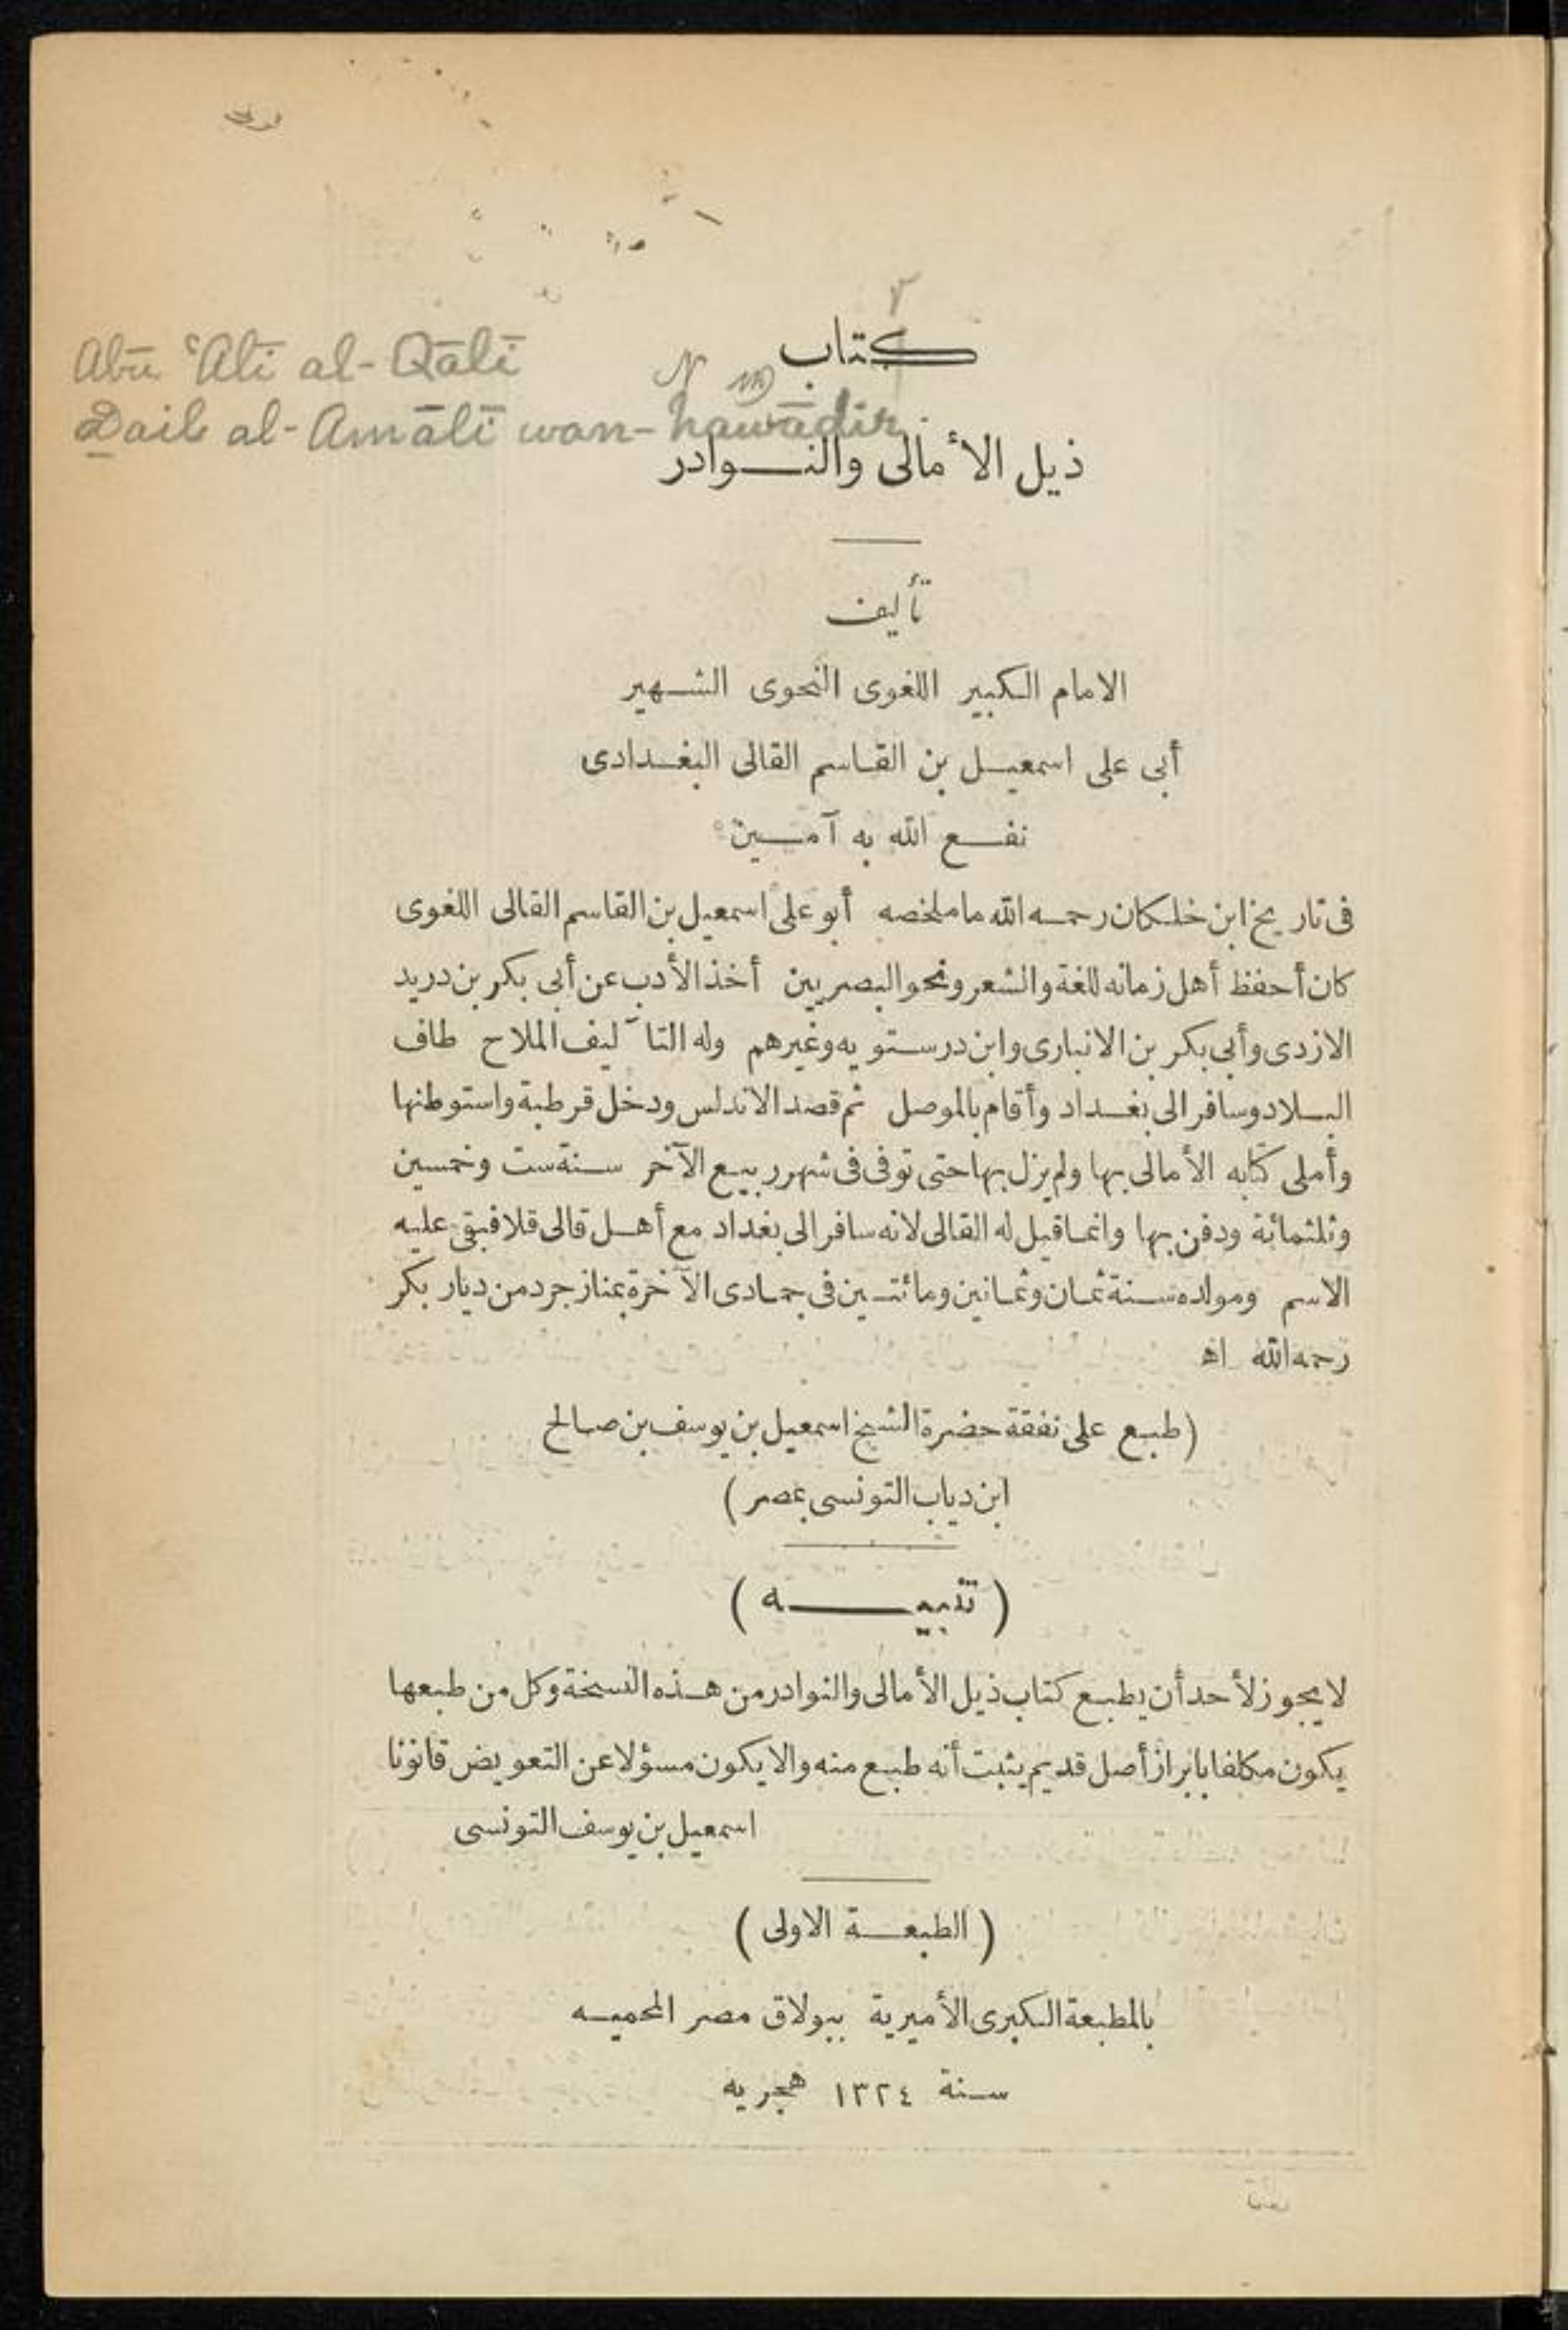 كتاب
Abū ʿAlī al-Qālī
Ḏail al-Amālī wan-nawādir.
ذيل الأمالى والنوادر
تأليف
الامام الكبير اللغوى النحوى الشهير
أبى على اسمعيل بن القاسم القالى البغدادى
نفع الله به آمين
فى تاريخ ابن خلكان رحمه الله ما ملخصه أبو على اسمعيل بن القاسم القالى اللغوى
كان أحفظ أهل زمانه للغة والشعر ونحو البصريين أخذ الأدب عن أبى بكر بن دريد
الازدى وأبى بكر بن الانبارى وابن درستويه وغيرهم وله التآليف الملاح طاف
البلاد وسافر الى بغداد وأقام بالموصل ثم قصد الاندلس ودخل قرطبة واستوطنها
وأملى كتابه الأمالى بها ولم يزل بها حتى توفى فى شهر ربيع الآخر سنة ست وخمسين
وثلثمائة ودفن بها وانما قيل له القالى لانه سافر الى بغداد مع أهل قالى قلا فبقى عليه
الاسم ومولده سنة ثمان وثمانين ومائتين فى جمادى الآخرة بمنازجرد من ديار بكر
رحمه الله اه
(طبع على نفقة حضرة الشيخ اسمعيل بن يوسف بن صالح
ابن دياب التونسى بمصر)
(تنبيه)
لا يجوز لأحد أن يطبع كتاب ذيل الأمالى والنوادر من هذه النسخة وكل من طبعها
يكون مكلفا بابراز أصل قديم يثبت أنه طبع منه والا يكون مسؤلا عن التعويض قانونا
اسمعيل بن يوسف التونسى
(الطبعة الاولى)
بالمطبعة الكبرى الأميرية ببولاق مصر المحميه
سنة ١٣٢٤ هجريه